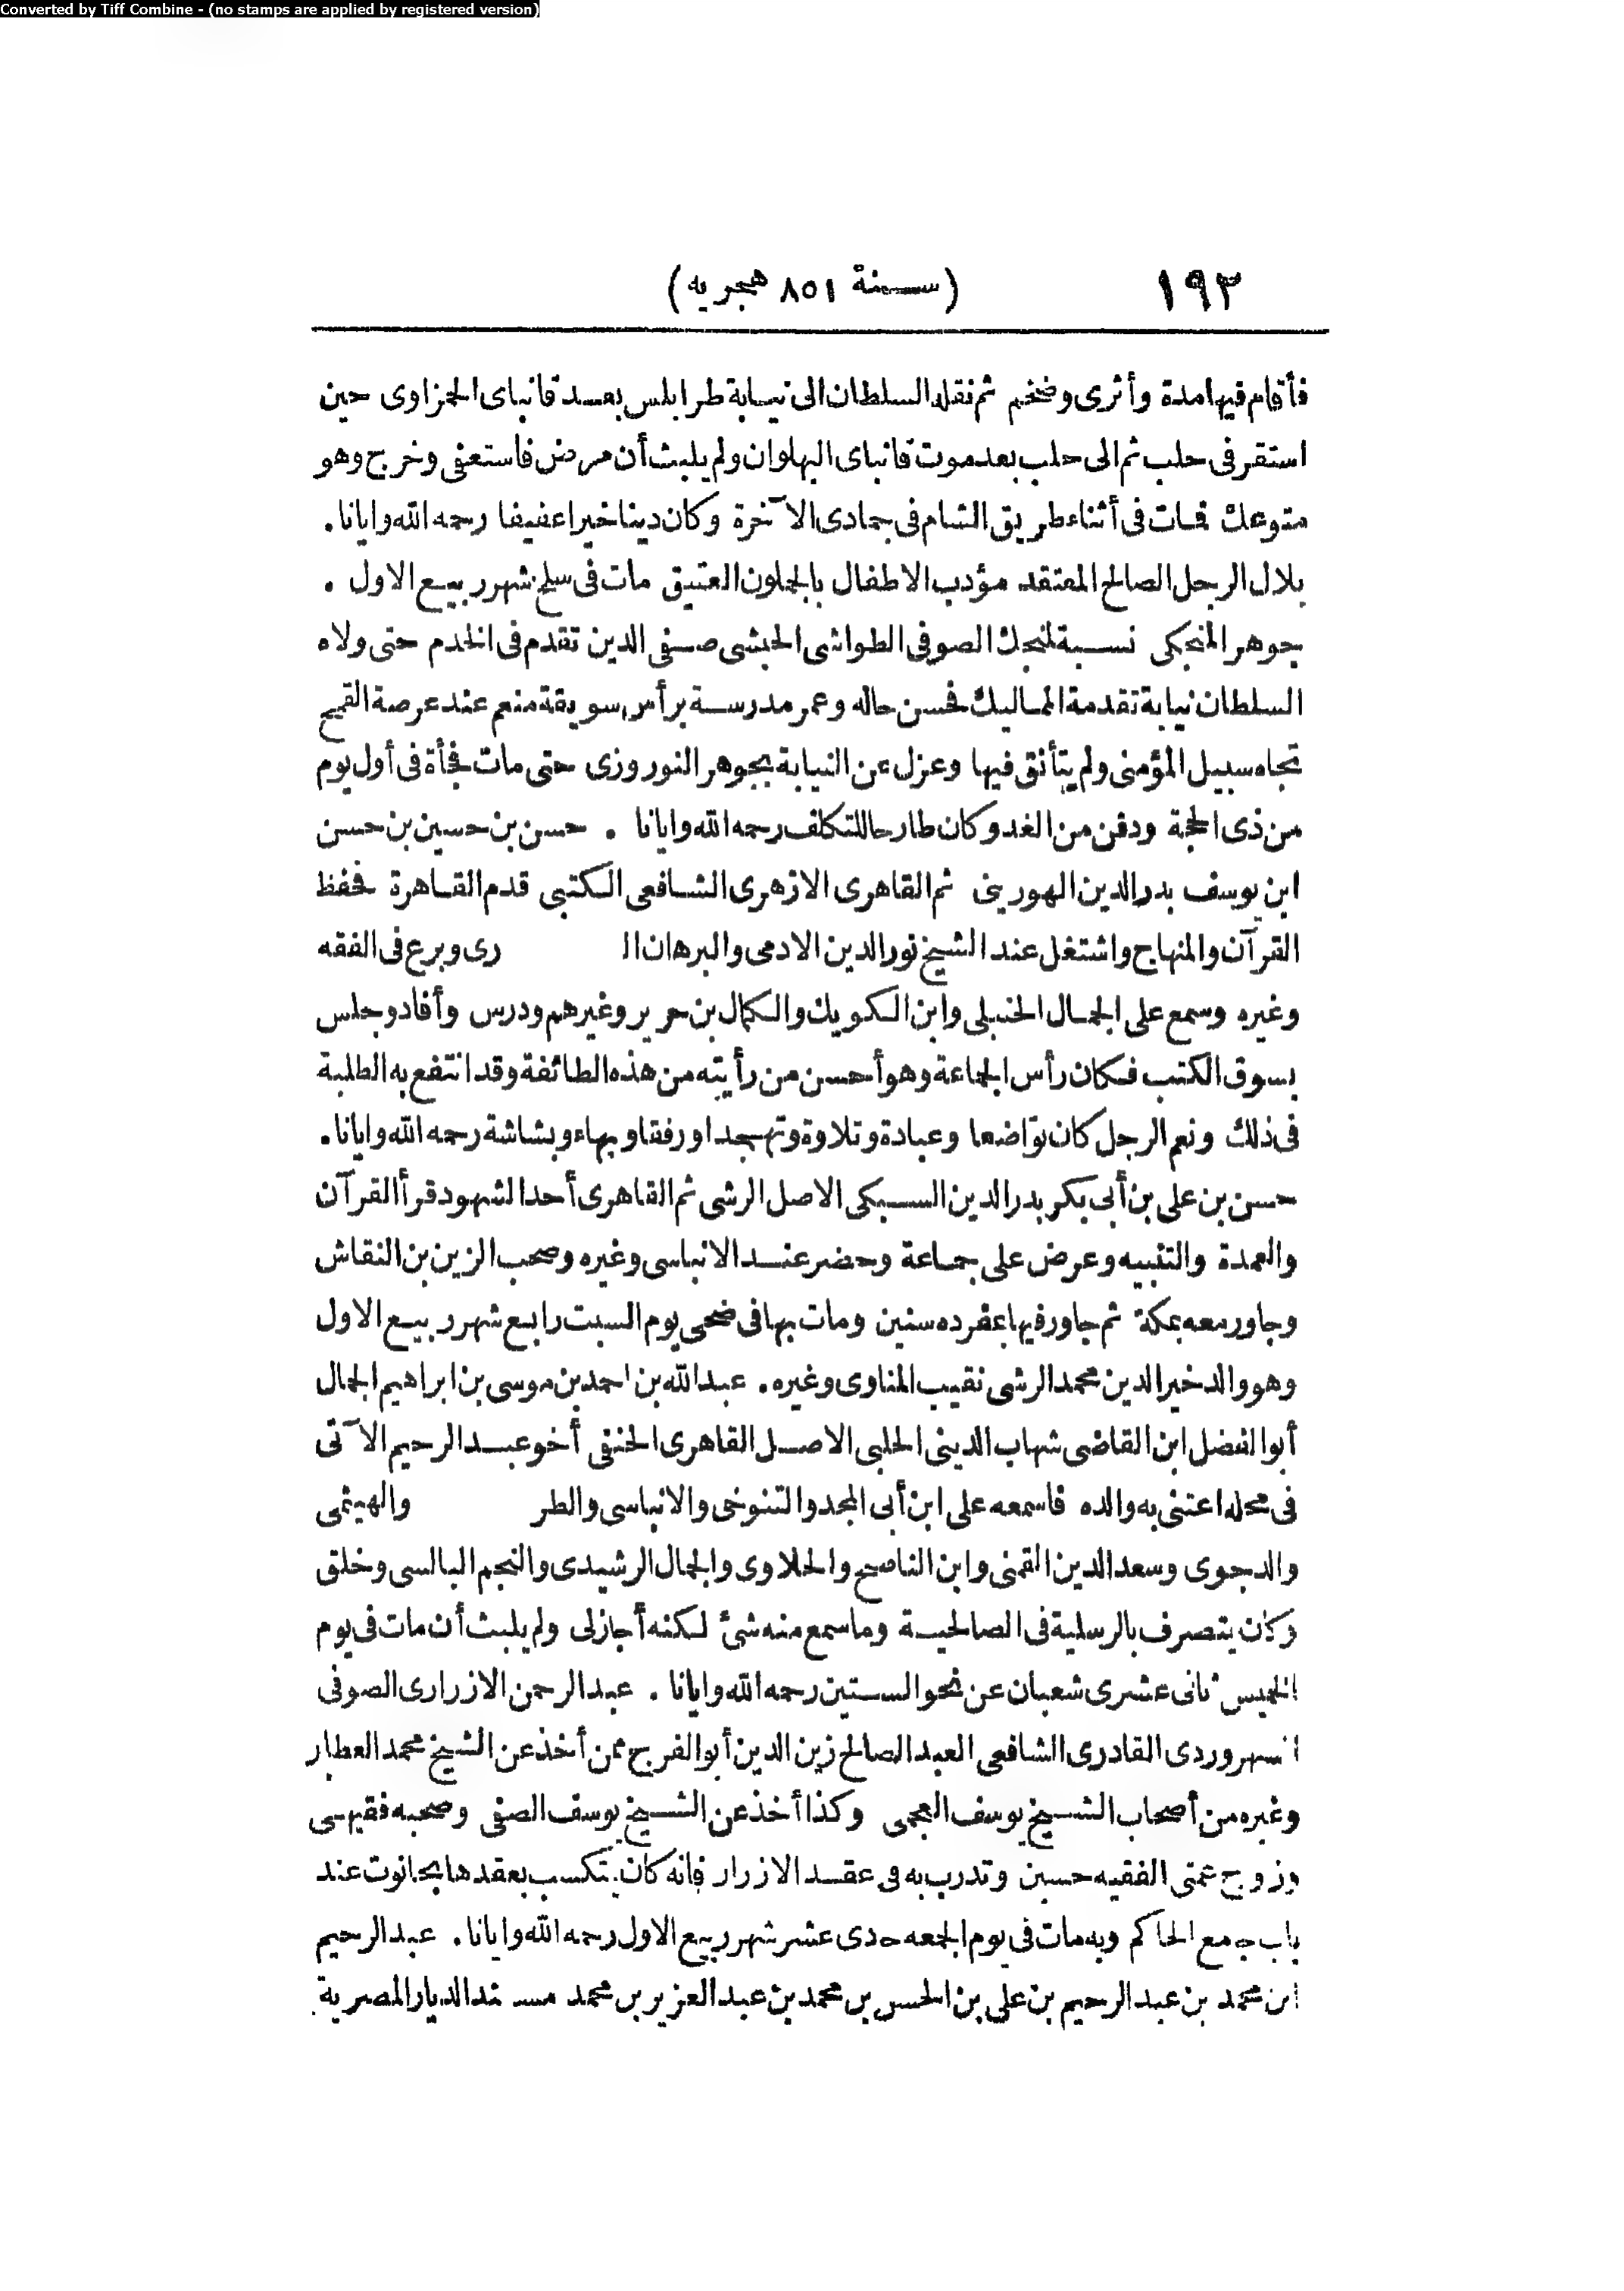 Converted by Tiff Combine - (no stamps are applied by registered version)
١٩٢ (سنة ٨٥١ هجريه)
فأقام فيها مدة وأثرى وضخم ثم نقله السلطان الى نيابة طرابلس بعد قانباى الحمزاوى حين
استقر فى حلب ثم الى حلب بعد موت قانباى البهلوان ولم يلبث أن مرض فاستعفى وخرج وهو
متوعك فمات فى أثناء طريق الشام فى جمادى الآخرة وكان دينا خيرا عفيفا رحمه الله وايانا .
بلال الرجل الصالح المعتقد مؤدب الاطفال بالجملون العتيق مات فى سلخ شهر ربيع الاول .
جوهر المنجكى نسبة لمنجك الصوفى الطواشى الحبشى صفى الدين تقدم فى الخدم حتى ولاه
السلطان نيابة تقدمة المماليك فحسن حاله وعمر مدرسة برأس سويقة منعم عند عرصة القمح
تجاه سبيل المؤمنى ولم يتأنق فيها وعزل عن النيابة بجوهر النوروزى حتى مات فجأة فى أول يوم
من ذى الحجة ودفن من الغد وكان طارحا للتكلف رحمه الله وايانا . حسن بن حسين بن حسن
ابن يوسف بدر الدين الهورينى ثم القاهرى الازهرى الشافعى الكتبى قدم القاهرة فحفظ
القرآن والمنهاج واشتغل عند الشيخ نور الدين الادمى والبرهان ال رى وبرع فى الفقه
وغيره وسمع على الجمال الحنبلى وابن الكويك والكمال بن حرير وغيرهم ودرس وأفاد وجلس
بسوق الكتب فكان رأس الجماعة وهو أحسن من رأيته من هذه الطائفة وقد انتفع به الطلبة
فى ذلك ونعم الرجل كان تواضعا وعبادة وتلاوة وتهجدا ورفقا وبهاء وبشاشة رحمه الله وايانا .
حسن بن على بن أبى بكر بدر الدين السبكى الاصل الرشى ثم القاهرى أحد الشهود قرأ القرآن
والعمدة والتنبيه وعرض على جماعة وحضر عند الانباسى وغيره وصحب الزين بن النقاش
وجاور معه بمكة ثم جاور فيها بمفرده سنين ومات بها فى ضحى يوم السبت رابع شهر ربيع الاول
وهو والد خير الدين محمد الرشى نقيب المناوى وغيره . عبد الله بن احمد بن موسى بن ابراهيم الجمال
أبو الفضل ابن القاضى شهاب الدينى الحلبى الاصل القاهرى الحنفى أخو عبد الرحيم الآتى
فى محله اعتنى به والده فاسمعه على ابن أبى المجد والتنوخى والانباسى والطر والهيثمى
والدجوى وسعد الدين القمنى وابن الناصح والحلاوى والجمال الرشيدى والنجم البالسى وخلق
وكان يتصرف بالرسلية فى الصالحية وما سمع منه شئ لكنه أجاز لى ولم يلبث أن مات فى يوم
الخميس ثانى عشرى شعبان عن نحو الستين رحمه الله وايانا . عبد الرحمن الازرارى الصوفى
السهروردى القادرى الشافعى العبد الصالح زين الدين أبو الفرج ممن أخذ عن الشيخ محمد العطار
وغيره من أصحاب الشيخ يوسف العجمى وكذا أخذ عن الشيخ يوسف الصفى وصحبه فقيهى
وزوج عمتى الفقيه حسين وتدرب به فى عقد الازرار فانه كان يتكسب بعقدها بحانوت عند
باب جامع الحاكم وبه مات فى يوم الجمعه حادى عشر شهر ربيع الاول رحمه الله وايانا . عبد الرحيم
ابن محمد بن عبد الرحيم بن على بن الحسن بن محمد بن عبد العزيز بن محمد مسند الديار المصرية